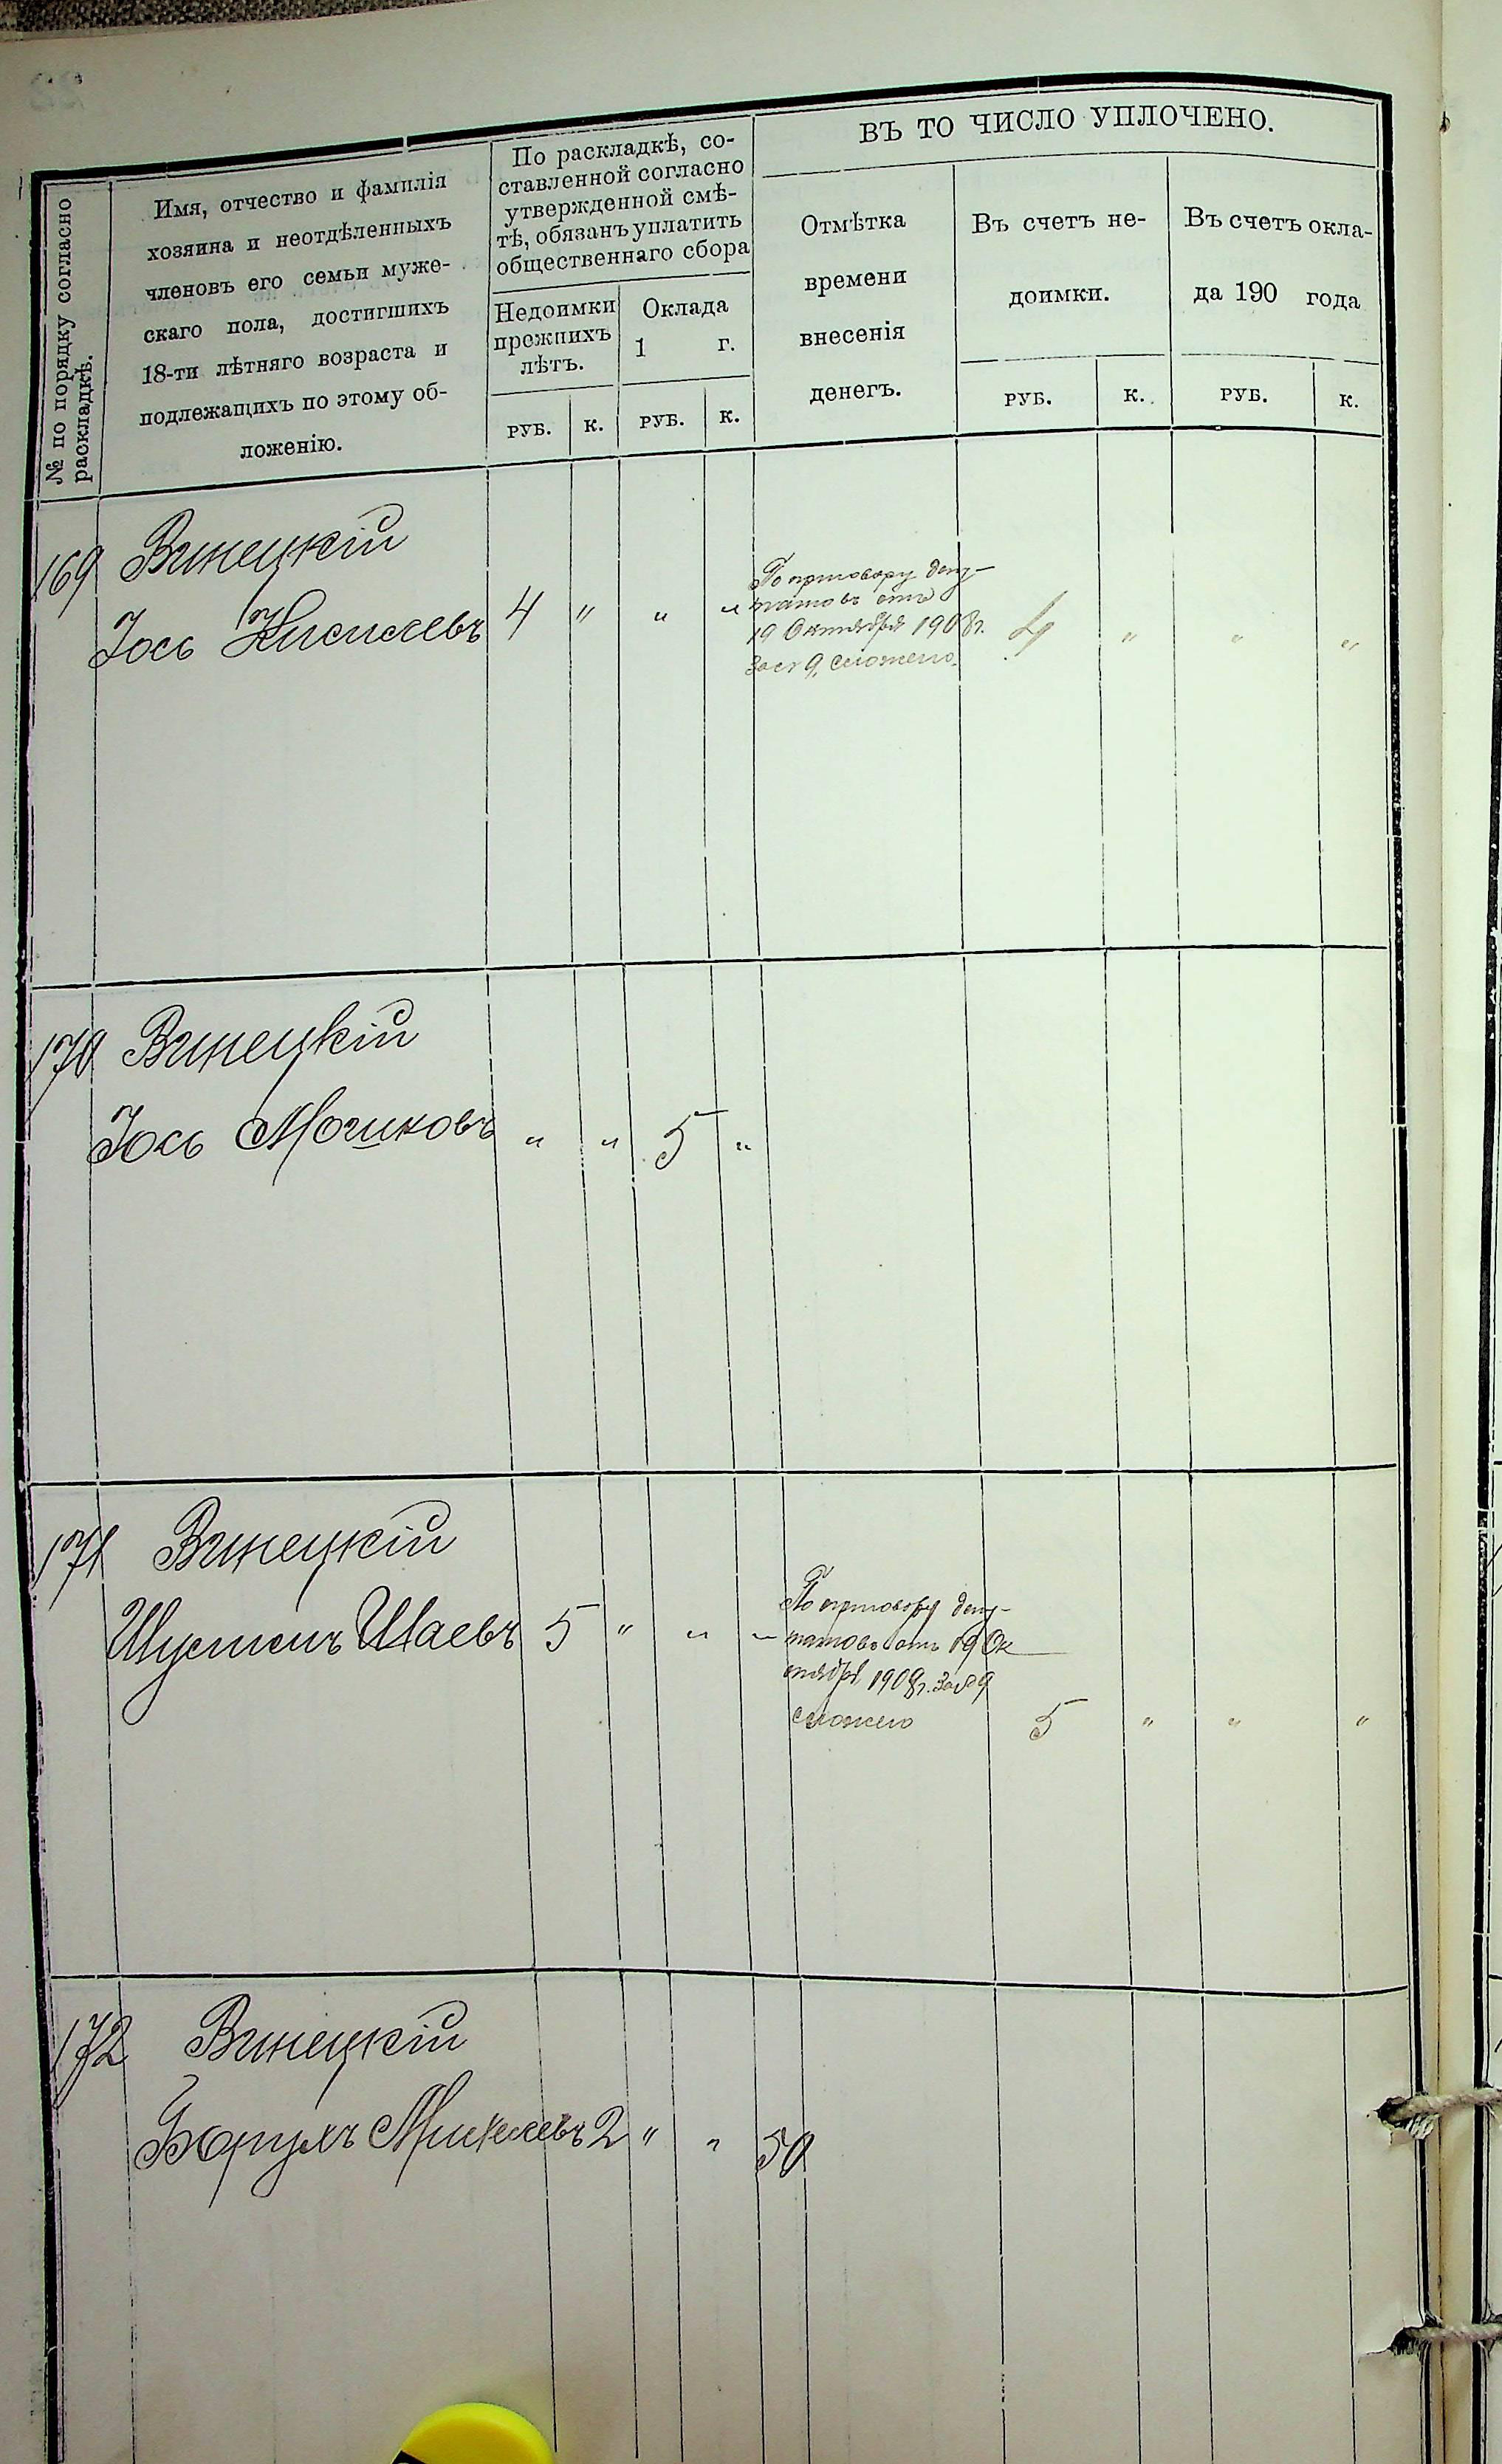 № по порядку согласно
раскладкѣ.
Имя, отчество и фамилія
хозяина и неотдѣленныхъ
членовъ его семьи муже-
скаго пола, достигшихъ
18-ти лѣтняго возраста и
подлежащихъ по этому об-
ложенію.
По раскладкѣ, со-
ставленной согласно
утвержденной смѣ-
тѣ, обязанъ уплатить
общественнаго сбора
Недоимки
прежнихъ
лѣтъ.
Оклада
1 г.
РУБ. К. РУБ. К.
ВЪ ТО ЧИСЛО УПЛОЧЕНО.
Отмѣтка
времени
внесенія
денегъ.
Въ счетъ не-
доимки.
РУБ. К.
Въ счетъ окла-
да 190 года
РУБ. К.
169 Винецкій
Іось 4 " " "
По приговору депу-
татовъ отъ
19 Октября 1908 г.
за № 9, сложено.
4 " " "
170 Винецкій
Іось Мошковъ " " 5 "
171 Винецкій
Шаевъ 5 " " "
По приговору депу-
татовъ отъ 19 Ок
тября 1908 г. за № 9
сложено
5 " " "
172 Винецкій
Борухъ 2 " " 50